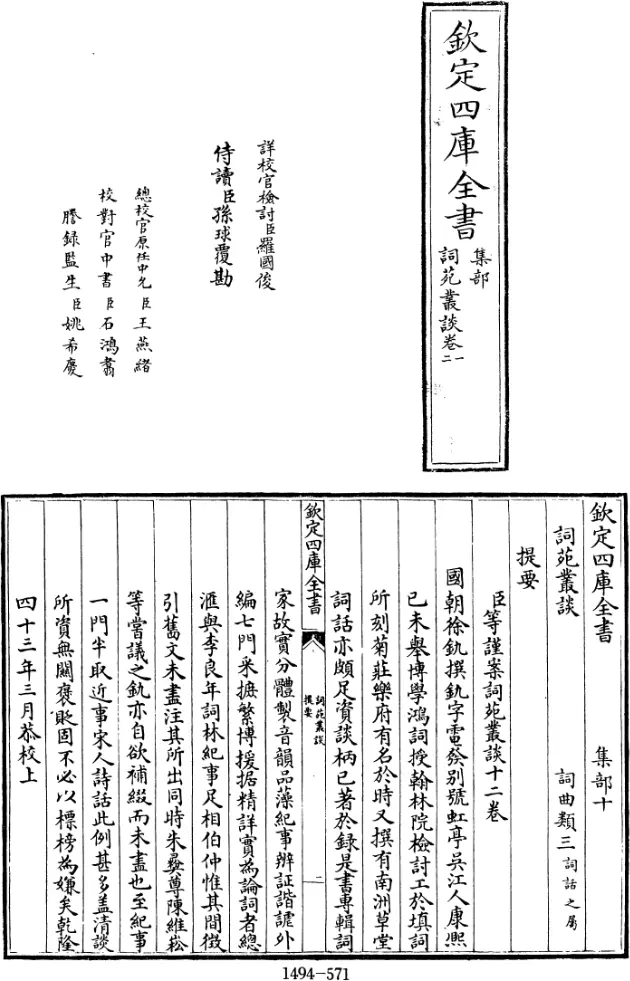 欽定四庫全書
集部
詞苑叢談卷一
二
詳校官檢討臣羅國俊
侍讀臣孫球覆勘
總校官原任中允臣王燕緒
校對官中書臣石鴻翥
謄録監生臣姚希慶
欽定四庫全書 集部十
詞苑叢談 詞曲類三詞話之屬
提要
臣等謹案詞苑叢談十二卷
國朝徐釚撰釚字電發别號虹亭吳江人康熙
己未舉博學鴻詞授翰林院檢討工於填詞
所刻菊莊樂府有名於時又撰有南洲草堂
詞話亦頗足資談柄已著於録是書專輯詞
欽定四庫全書
詞苑叢談
提要
一
家故實分體製音韻品藻紀事辨証諧謔外
編七門采摭繁博援据精詳實為論詞者總
滙與李良年詞林紀事足相伯仲惟其間徴
引舊文未盡注其所出同時朱彛尊陳維崧
等嘗議之釚亦自欲補綴而未盡也至紀事
一門半取近事宋人詩話此例甚多盖清談
所資無關褒貶固不必以標榜為嫌矣乾隆
四十三年三月恭校上
1494-571